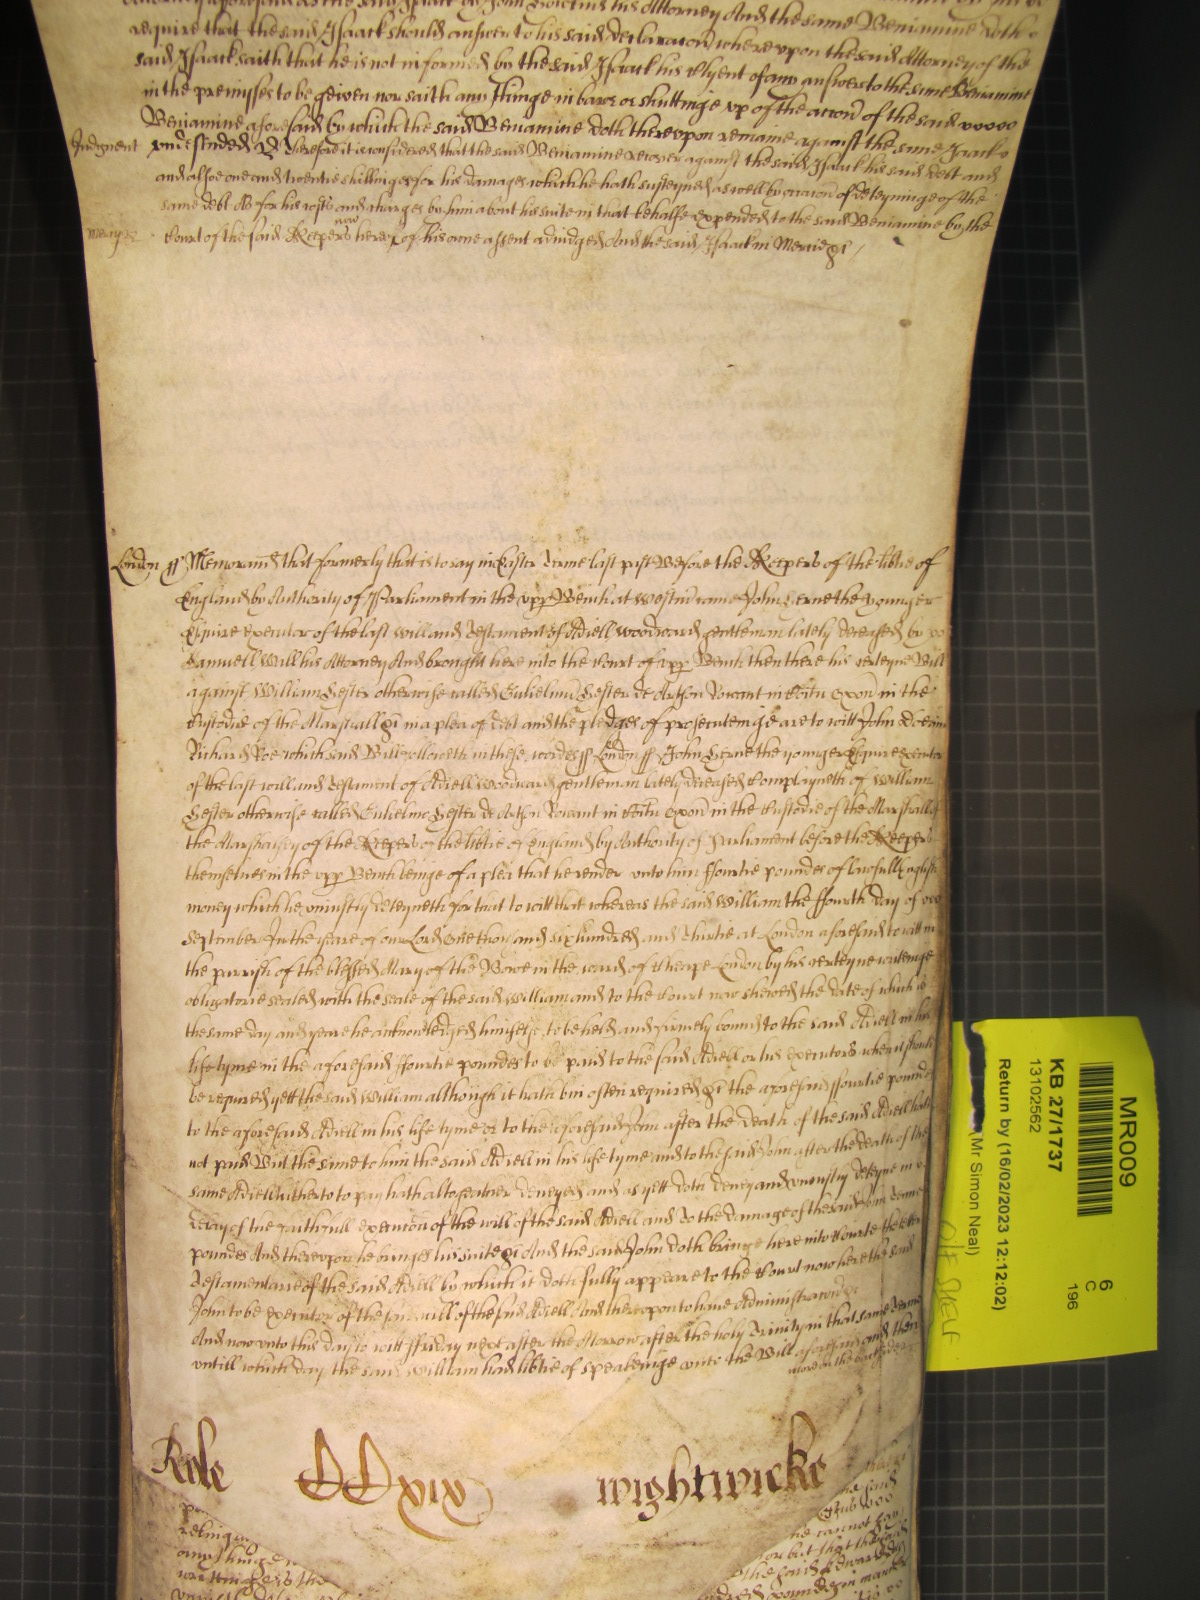 require that the said Isaack should answer to his said declaracon whereupon the said Attorney of the
said Isaack saith that he is not informed by the said Isaack his Clyent of any answere to the same Beniamine
in the premisses to be geiven nor saith any thinge in barr or shuttinge up of the accon of the said
Beniamine aforesaid by which the said Beniamine doth thereupon remaine against the same Isaack
Judgment undefended Therefore it is considered that the said Beniamine recover against the said Isaack his said debt and
and alsoe one and twentie shillinges for his damages which he hath susteyned as well by occacon of deteyninge of the
same debt As for his costs and charges by him about his suite in that behalfe expended to the said Beniamine by the
mercy Court of the said Keepers now here of his owne assent adiudged And the said Isaack in Mercie &c
London ss Memorand that formerly that is to say in Easter Terme last past Before the Keepers of the libtie of
England by Authority of Parliament in the upp Bench at Westm came John Cerne the younger
Esquire executor of the last will and Testament of Adiell Woodward gentleman lately deceased by
Samuell Will his Attorney And brought here into the Court of upp Bench then there his certeyne Bill
against William Lester otherwise called Gulielmu Lester de Aston Rowant in Com Oxon in the
Custodie of the Marshall &c in a plea of debt and the pledges of prosecuteinge are to witt John Doe and
Richard Roe which said Bill followeth in these wordes ss London ss John Cerne the younger Esquire executor
of the last will and Testament of Adiell Woodward gentleman lately deceased Complayneth of William
Lester otherwise called Gulielmu Lester de Aston Rowant in Com Oxon in the Custodie of the Marshall of
the Marshalsey of the Keepers of the libtie of England by Authority of Parliament before the Keepers
themselves in the upp Bench beinge of a plea that he render unto him ffourtie poundes of lawfull English
money which he uniustly deteyneth for that to witt that whereas the said William the ffourth day of
September In the yeare of our Lord One thousand six hundred and thirtie at London aforesaid to witt in
the parrish of the blessed Mary of the Bowe in the ward of Cheape London by his certeyne writeinge
obligatorie sealed with the seale of the said William and to the Court now shewed the date of which is
the same day and yeare he acknowledged himselfe to be held and firmely bound to the said Adiell in his
life tyme in the aforesaid ffourtie poundes to be paid to the said Adiell or his executors when it should
be required yett the said William although it hath bin often required &c the aforesaid ffourtie poundes
to the aforesaid Adiell in his life tyme or to the aforesaid John after the death of the said Adiell hath
not paid But the same to him the said Adiell in his life tyme and to the said John after the death of the
same Adiell hitherto to pay hath altogeather denyed and as yett doth deney and uniustly deteyne in
delay of the faithfull execucon of the will of the said Adiell and to the damage of the said John tenne
poundes And thereupon he bringes his suite &c And the said John doth bringe here into Courte the letters
Testamentarie of the said Adiell by which it doth fully appeare to the Court now here the said
John to be executor of the said will of the said Adiell And thereupon to have Administracon &c
And now unto this day to witt ffriday next after the Morrow after the holy Trinity in that same Terme
untill which day the said William had libtie of speakeinge unto the Bill aforesaid and then
more on the backside
Role CCxix wightwicke
MR009
6
C
196
KB 27/1737
13102562
Return by (16/02/2023 12:12:02)
(Mr Simon Neal)
O/S SHELF